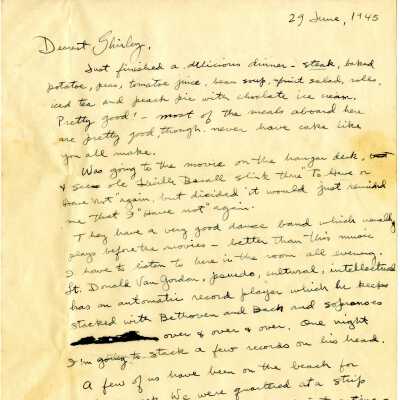 29 June, 1945
Dearest Shirley,
Just finished a delicious dinner - steak, baked
potatoe, peas, tomatoe juice, bean soup, fruit salad, rolls,
iced tea and peach pie with choclate ice cream.
Pretty good! - most of the meals aboard here
are pretty good though. never have cake like
you all make.
Was going to the movie on the hangar deck,
& see ole Bacall slink thru "To Have or
Have Not" again, but decided it would just remind
me that I "Have not" again.
They have a very good dance band which usually
plays before the movies - better than this music
I have to listen to here in the room all evening.
Lt. Donald Van Gordon, psuedo, cultural, intellectual
has an automatic record player which he keeps
stacked with Bethoven and Bach and sopranoes
over & over & over. One night
I'm going to stack a few records on his head.
A few of us have been on the beach for
We were quartered at a strip